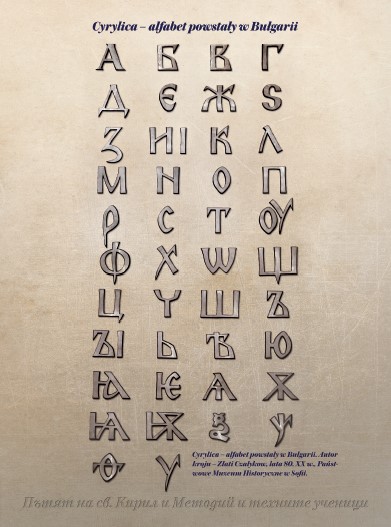 Cyrylica – alfabet powstały w Bułgarii
А Б В Г
Д Є Ж Ѕ
Ʒ ИІ К Л
М N О П
Р С Т ОУ
Ф Х Ѡ Щ
Ц Ү Ш Ъ
ЪІ Ь Ѣ Ю
Ꙗ Ѥ Ѧ Ѫ
Ѩ Ѭ Ѯ Ѱ
Ѳ Ѵ
Cyrylica – alfabet powstały w Bułgarii. Autor
kroju – Zlati Czałykow, lata 80. XX w., Państ-
wowe Muzeum Historyczne w Sofii.
Пътят на св. Кирил и Методий и техните ученици